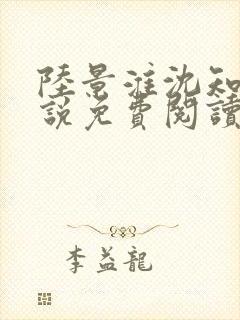 陸景淮沈知
說免費閱讀
李益龍